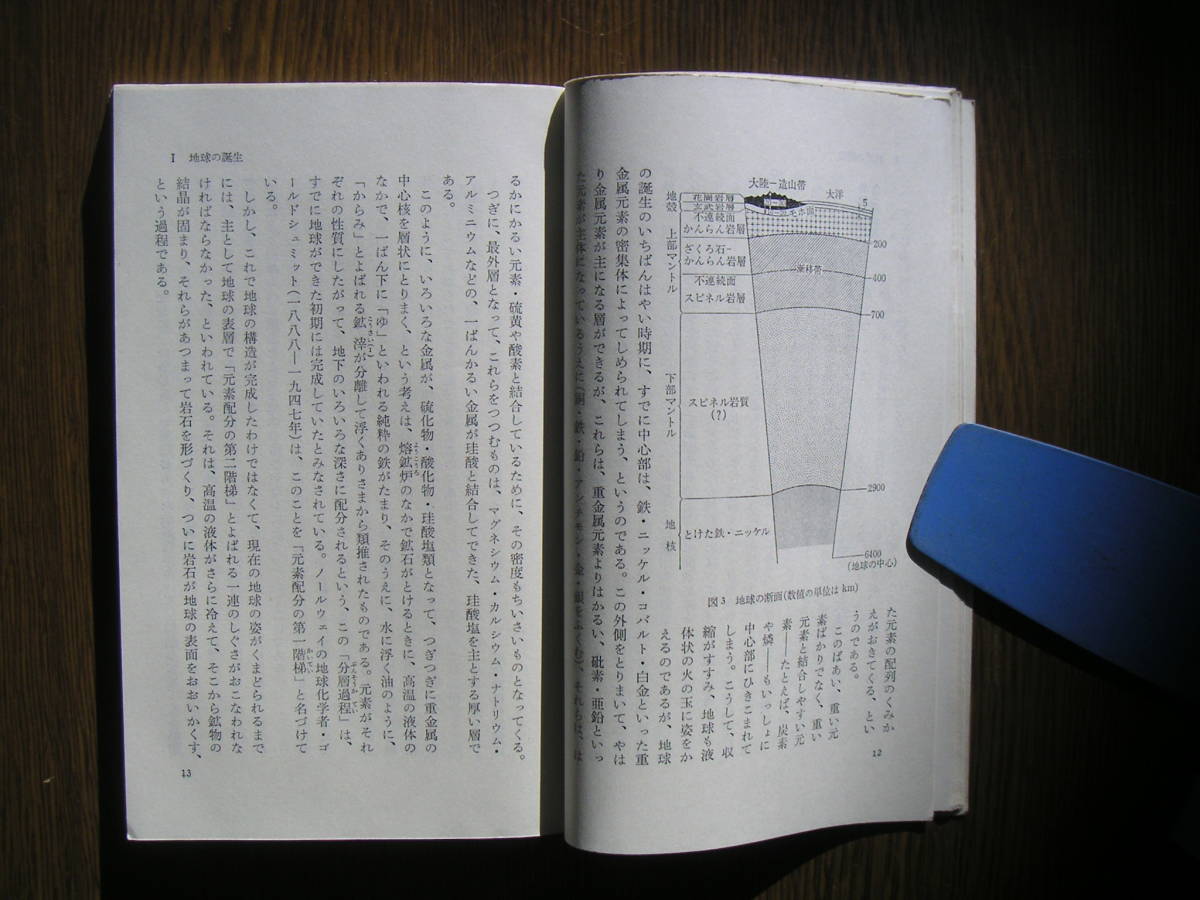 12
大陸ー造山帯
大洋
5
地殻
花崗岩層
玄武岩層
モホ面
不連続面
かんらん岩層
200
上部マントル
ざくろ石ー
かんらん岩層
400
不連続面
スピネル岩層
700
下部マントル
スピネル岩質
(?)
2900
地核
とけた鉄・ニッケル
6400
(地球の中心)
図3 地球の断面(数値の単位は km)
た元素の配列のくみか
えがおきてくる、とい
うのである。
このばあい、重い元
素ばかりでなく、重い
元素と結合しやすい元
素——たとえば、炭素
や燐——もいっしょに
中心部にひきこまれて
しまう。こうして、収
縮がすすみ、地球も液
体状の火の玉に姿をか
えるのであるが、地球
の誕生のいちばんはやい時期に、すでに中心部は、鉄・ニッケル・コバルト・白金といった重
金属元素の密集体によってしめられてしまう、というのである。この外側をとりまいて、やは
り金属元素が主になる層ができるが、これらは、重金属元素よりはかるい、砒素・亜鉛といっ
た元素が主体になっているうえに(銅・鉄・鉛・アンチモン・金・銀をふくむ)、それらは、は
るかにかるい元素・硫黄や酸素と結合しているために、その密度もちいさいものとなってくる。
つぎに、最外層となって、これらをつつむものは、マグネシウム・カルシウム・ナトリウム・
アルミニウムなどの、一ばんかるい金属が珪酸と結合してできた、珪酸塩を主とする厚い層で
ある。
このように、いろいろな金属が、硫化物・酸化物・珪酸塩類となって、つぎつぎに重金属の
中心核を層状にとりまく、という考えは、熔鉱炉のなかで鉱石がとけるときに、高温の液体の
なかで、一ばん下に「ゆ」といわれる純粋の鉄がたまり、そのうえに、水に浮く油のように、
「からみ」とよばれる鉱滓が分離して浮くありさまから類推されたものである。元素がそれ
ぞれの性質にしたがって、地下のいろいろな深さに配分されるという、この「分層過程」は、
すでに地球ができた初期には完成していたとみなされている。ノールウェイの地球化学者・ゴ
ールドシュミット(一八八八—一九四七年)は、このことを「元素配分の第一階梯」と名づけて
いる。
しかし、これで地球の構造が完成したわけではなくて、現在の地球の姿がくまどられるまで
には、主として地球の表層で「元素配分の第二階梯」とよばれる一連のしぐさがおこなわれな
ければならなかった、といわれている。それは、高温の液体がさらに冷えて、そこから鉱物の
結晶が固まり、それらがあつまって岩石を形づくり、ついに岩石が地球の表面をおおいかくす、
という過程である。
I 地球の誕生
13